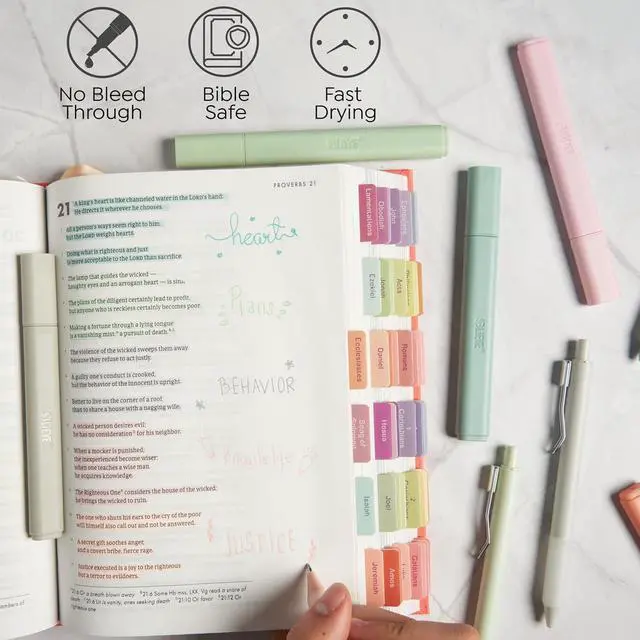 No Bleed
Through
Bible
Safe
Fast
Drying
PROVERBS 21
21 A king's heart is like channeled water in the LORD's hand:
He directs it wherever he chooses.
All a person's ways seem right to him,
but the LORD weighs hearts.
Doing what is righteous and just
is more acceptable to the LORD than sacrifice.
The lamp that guides the wicked —
haughty eyes and an arrogant heart — is sin.
The plans of the diligent certainly lead to profit,
but anyone who is reckless certainly becomes poor.
Making a fortune through a lying tongue
is a vanishing mist, a pursuit of death.
The violence of the wicked sweeps them away
because they refuse to act justly.
A guilty one's conduct is crooked,
but the behavior of the innocent is upright.
Better to live on the corner of a roof
than to share a house with a nagging wife.
A wicked person desires evil;
he has no consideration for his neighbor.
When a mocker is punished,
the inexperienced become wiser;
when one teaches a wise man,
he acquires knowledge.
The Righteous One considers the house of the wicked;
he brings the wicked to ruin.
The one who shuts his ears to the cry of the poor
will himself also call out and not be answered.
A secret gift soothes anger,
and a covert bribe, fierce rage.
Justice executed is a joy to the righteous
but a terror to evildoers.
21:6 Or a breath blown away 21:6 Some Hb mss, LXX, Vg read a snare of
21:6 Lit is vanity, ones seeking death 21:10 Or favor 21:12 Or
righteous one
heart
Plans
BEHAVIOR
Knowledge
JUSTICE
Lamentations
Obadiah
John
Ephesians
Ezekiel
Jonah
Acts
Ecclesiastes
Daniel
Romans
Song of
Hosea
Corinthians
Isaiah
Joel
Corinthians
Jeremiah
Amos
Galatians